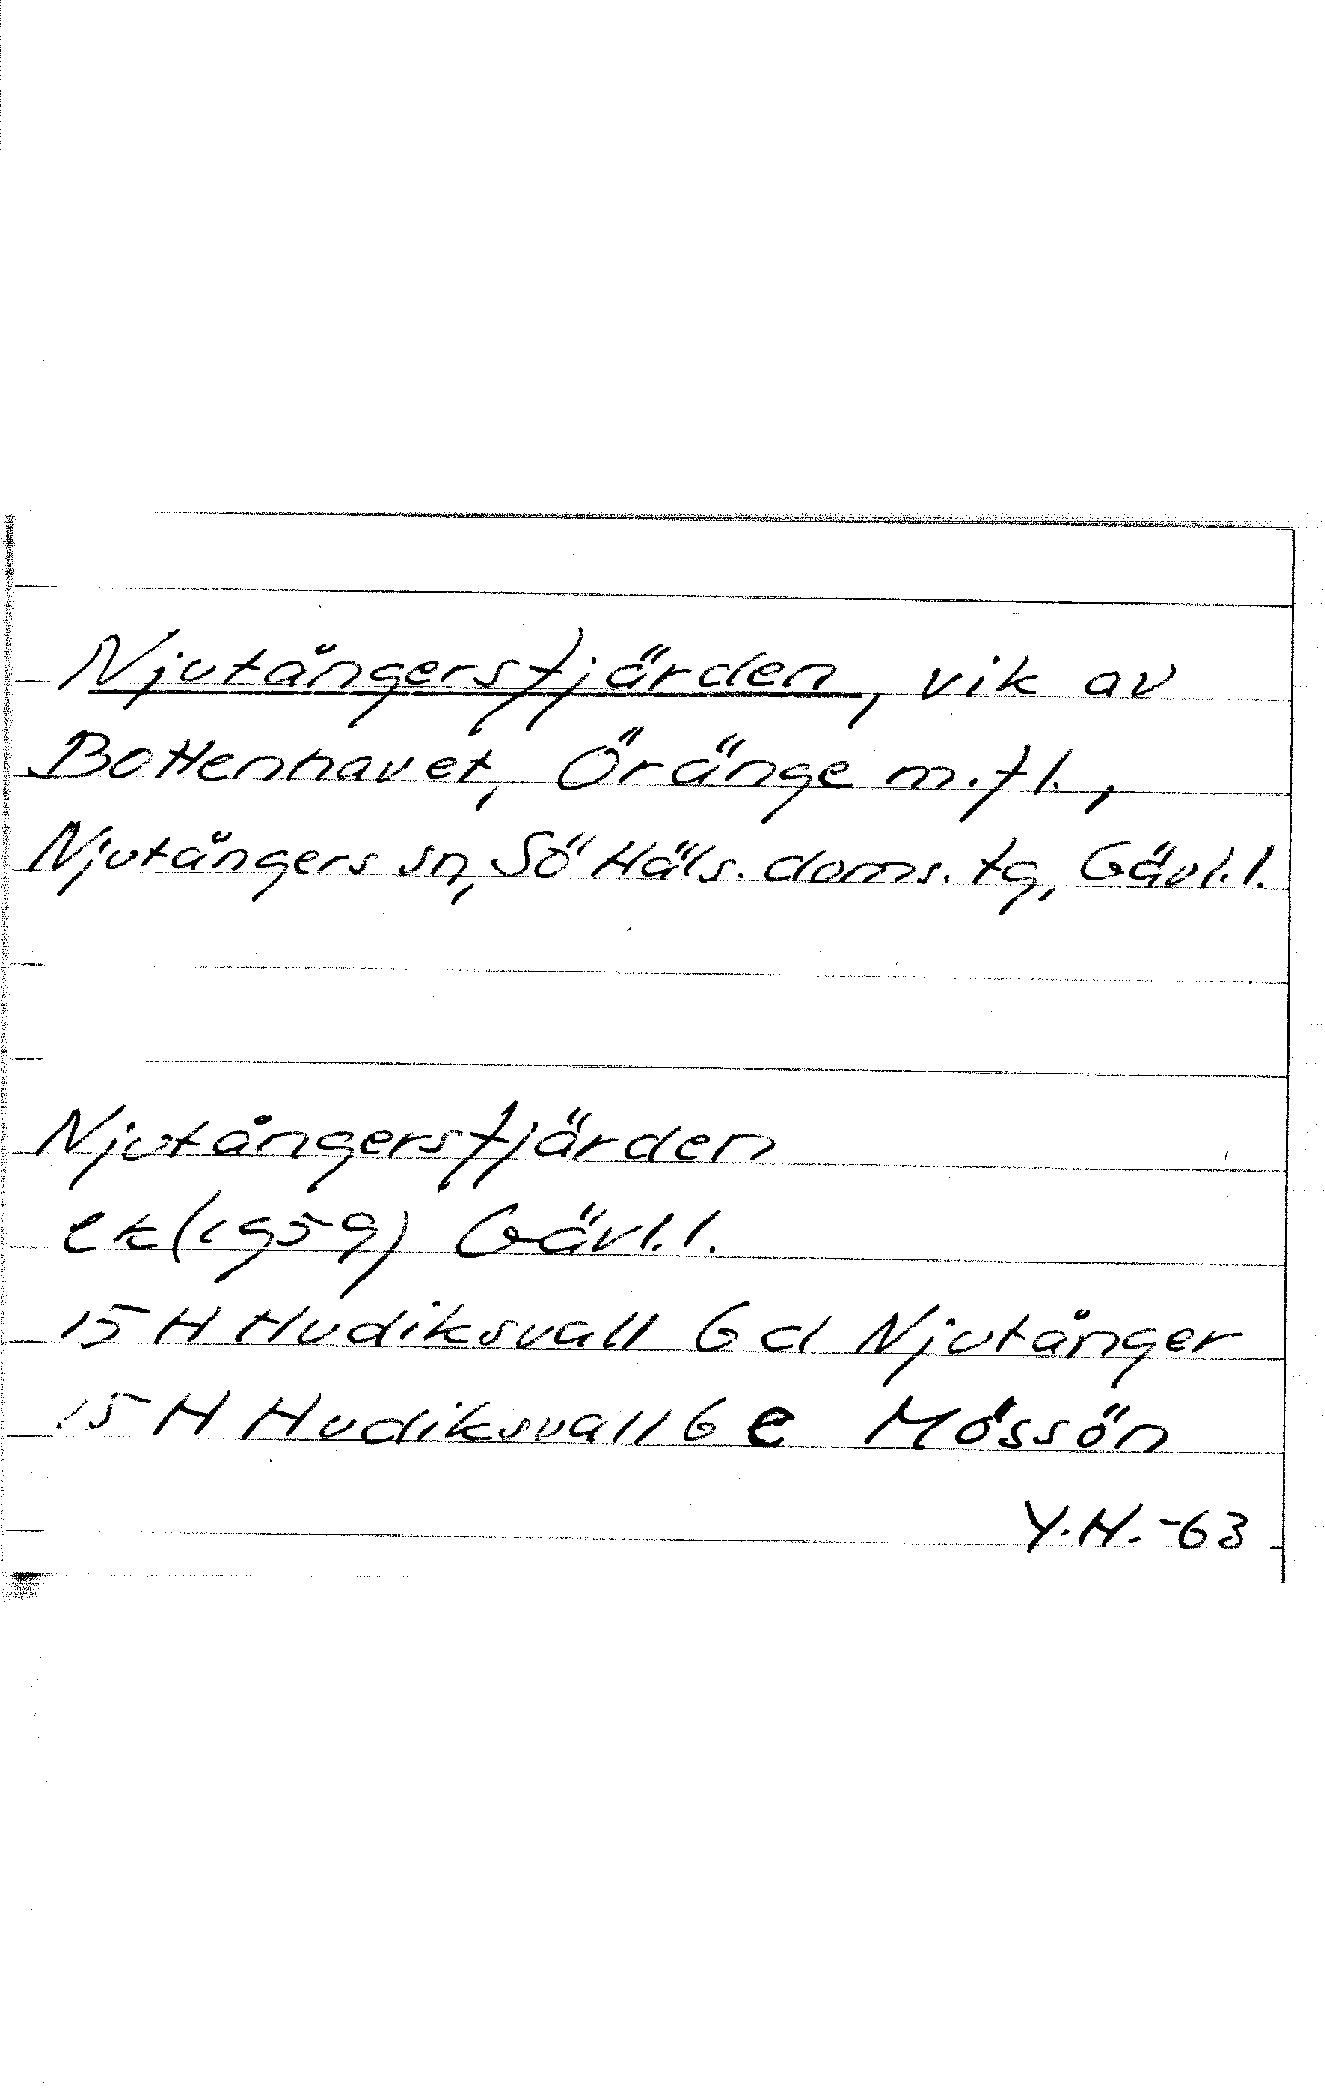 Njutångersfjärden, vik av
Bottenhavet, Öränge m.fl.,
Njutångers sn, Sö Häls. doms. tg, Gävl.l.
Njutångersfjärden
ek(1959) Gävl.l.
15 H Hudiksvall 6 d Njutånger
15 H Hudiksvall 6 e Mössön
Y.H.-63